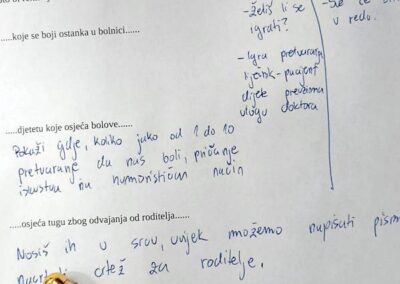 - Želiš li se
igrati?
u redu.
.....koje se boji ostanka u bolnici.....
- Igra pretvaranja
liječnik-pacijent
dijete preuzima
ulogu doktora
.....djetetu koje osjeća bolove......
Pokaži gdje, koliko jako od 1 do 10
pretvaranje da nas boli, pričanje
iskustva na humorističan način
.....osjeća tugu zbog odvajanja od roditelja......
Nosiš ih u srcu, uvijek možemo napisati pismo
crtež za roditelje.